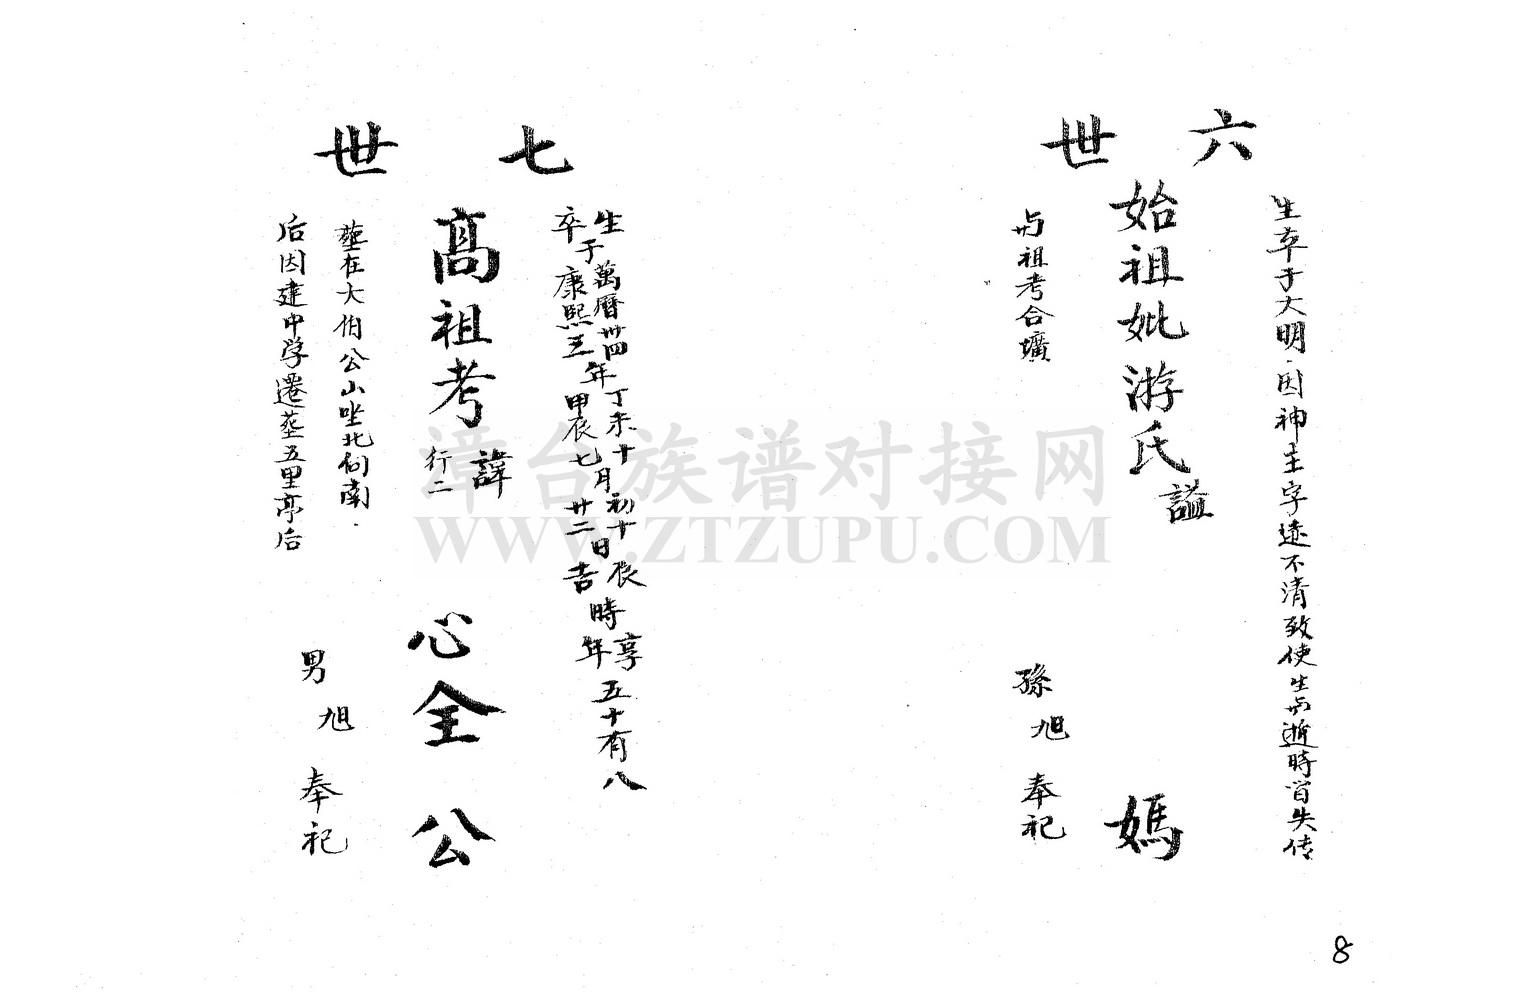 六世
生卒于大明·因神主字迹不清致使生与逝時皆失传
始祖妣游氏
謚
媽
与祖考合壙
孫旭奉祀
七世
生于萬曆卅四年丁未十月初十日辰時享年五十有八
卒康熙三年甲辰七月廿二日吉時
高祖考
諱
行二
心全公
塟在大伯公山坐北向南.
后因建中学遷塟五里亭后
男旭奉祀
漳台族谱对接网
WWW.ZTZUPU.COM
8